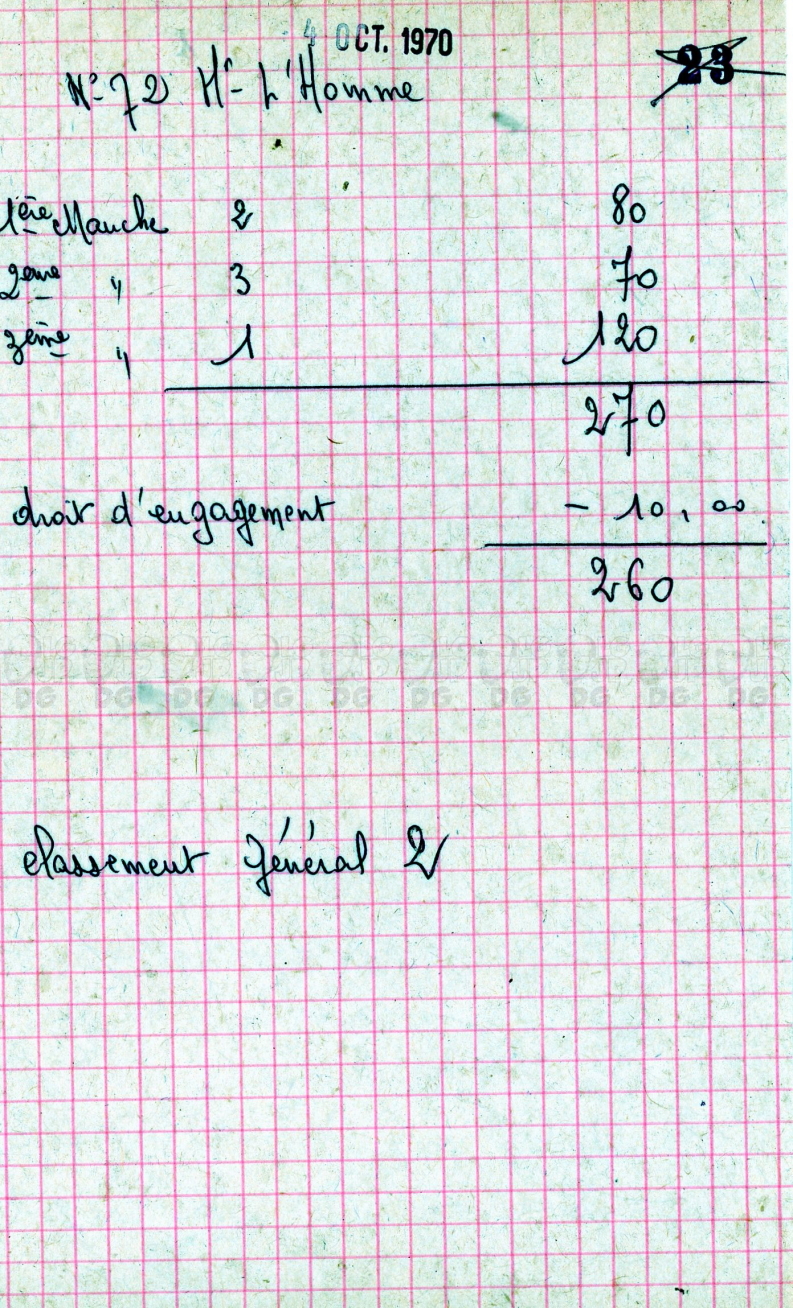 4 OCT. 1970
23
N° 72 Mr L'Homme
1ère Manche 2 80
2ème " 3 70
3ème " 1 120
270
droit d'engagement - 10,00
260
DG DG DG DG DG DG DG DG DG DG
classement général 2